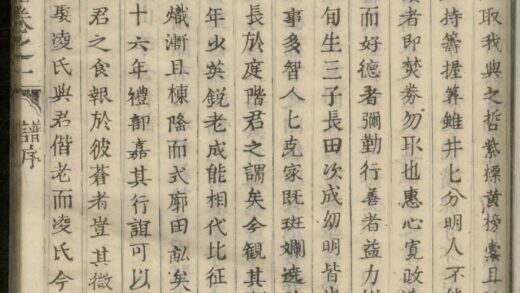 取我與之哲紫標黃榜棠且
持籌握筭雖井七分明人不能
者即焚券勿取也惠心寬政
而好德者彌勤行善者益力
旬生三子長田次成幼明皆
事多智人七克家既斑斕遶
長於庭階君之謂矣今觀其
年少英銳老成能相代比征
熾漸且棟隆而式廓田畝矣
十六年禮部嘉其行誼可以
君之食報於彼蒼者豈其微
娶凌氏與君偕老而凌氏今
卷之一
譜序